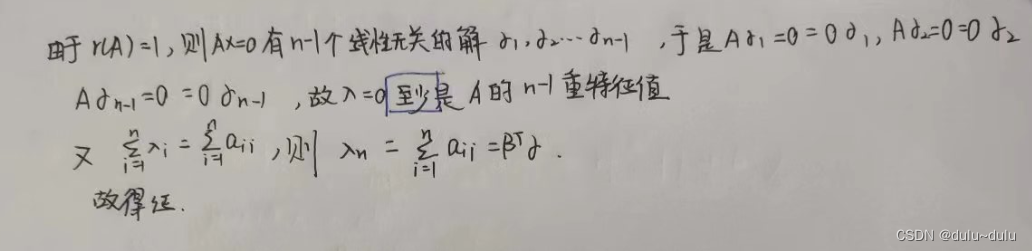 由于r(A)=1,则AX=0有n-1个线性无关的解 α₁,α₂…αₙ₋₁ ,于是Aα₁=0=0α₁, Aα₂=0=0α₂
Aαₙ₋₁=0=0αₙ₋₁ ,故λ=0至少是A的n-1重特征值
又 ∑ⁿᵢ₌₁λᵢ=∑ⁿᵢ₌₁aᵢᵢ ,则 λₙ = ∑ⁿᵢ₌₁ aᵢᵢ=βᵀα .
故得证.
CSDN @dulu~dulu